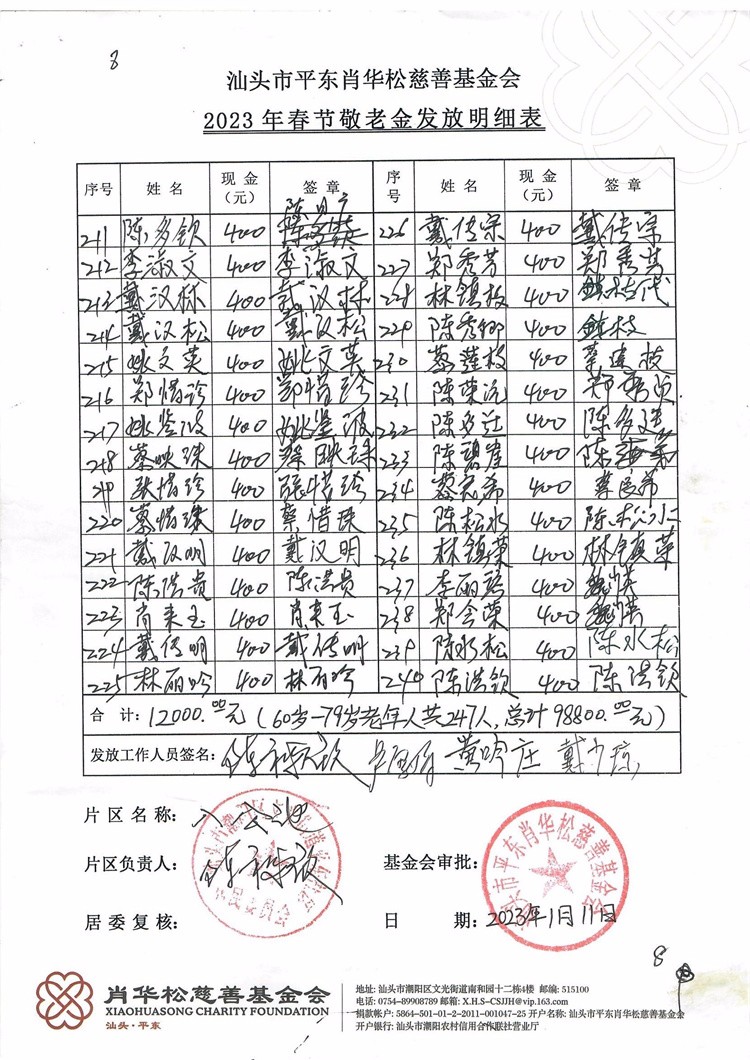 8
汕头市平东肖华松慈善基金会
2023年春节敬老金发放明细表
序号 姓名 现金(元) 签章 序号 姓名 现金(元) 签章
211 陈多钦 400 226 戴传宗 400 戴传宗
212 李淑文 400 李淑文 227 郑秀芳 400 郑秀芳
213 戴汉林 400 戴汉林 228 林镇枝 400
214 戴汉松 400 戴汉松 229 陈秀卿 400
215 姚文英 400 姚文英 230 蔡莲枝 400 蔡莲枝
216 郑惜珍 400 郑惜珍 231 陈荣沉 400
217 姚鉴波 400 姚鉴波 232 400
218 蔡映珠 400 蔡映珠 233 400
219 张惜珍 400 张惜珍 234 400
220 蔡惜珠 400 蔡惜珠 235 陈松水 400
221 戴汉明 400 戴汉明 236 林镇荣 400 林镇荣
222 陈浩贵 400 陈浩贵 237 400
223 肖来玉 400 肖来玉 238 郑会荣 400
224 戴传明 400 戴传明 239 陈水松 400 陈水松
225 林丽吟 400 林丽吟 240 陈浩钦 400 陈浩钦
合 计:12000.00元(60岁-79岁老年人共247人,总计98800.00元)
发放工作人员签名: 黄吟庄
片区名称:
片区负责人: 基金会审批:
居委复核: 日 期:2023年1月11日
汕头市平东肖华松慈善基金会
居民委员会
8
肖华松慈善基金会
XIAOHUASONG CHARITY FOUNDATION
汕头·平东
地址: 汕头市潮阳区文光街道南和园十二栋4楼 邮编: 515100
电话: 0754-89908789 邮箱: X.H.S-CSJJH@vip.163.com
捐款帐户: 5864-501-01-2-2011-001047-25 开户名称: 汕头市平东肖华松慈善基金会
开户银行: 汕头市潮阳农村信用合作联社营业厅